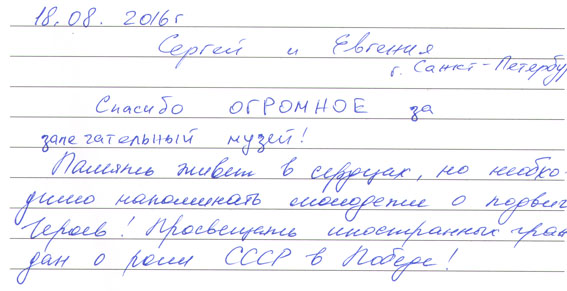 18.08. 2016г
Сергей и Евгения
г. Санкт-Петербу
Спасибо ОГРОМНОЕ за
запечательный музей!
Память живет в сердцах, но необхо-
димо напоминать молодежи о подвиг
Героев! Просвещать иностранных граж
дан о роли СССР в Победе!